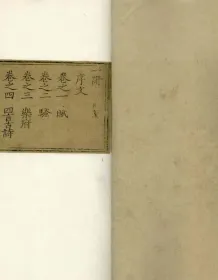 序文
卷之一 賦
卷之二 騷
卷之三 樂府
卷之四 四言古詩